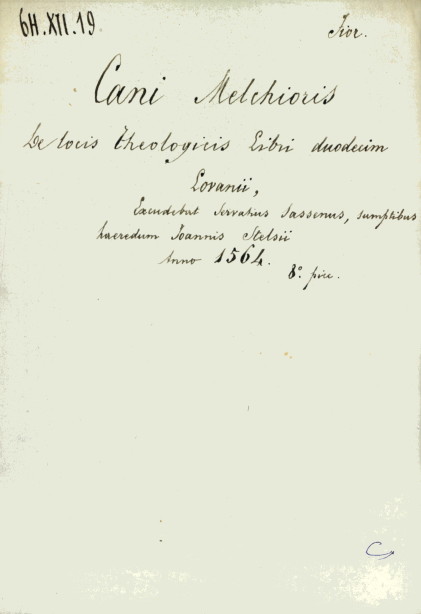 6H.XII.19
Fior.
Cani Melchioris
De locis theologicis Libri duodecim
Lovanii,
Excudebat Servatius Sassenus, sumptibus
haeredum Joannis Stelsii
Anno 1564.
8.° picc.